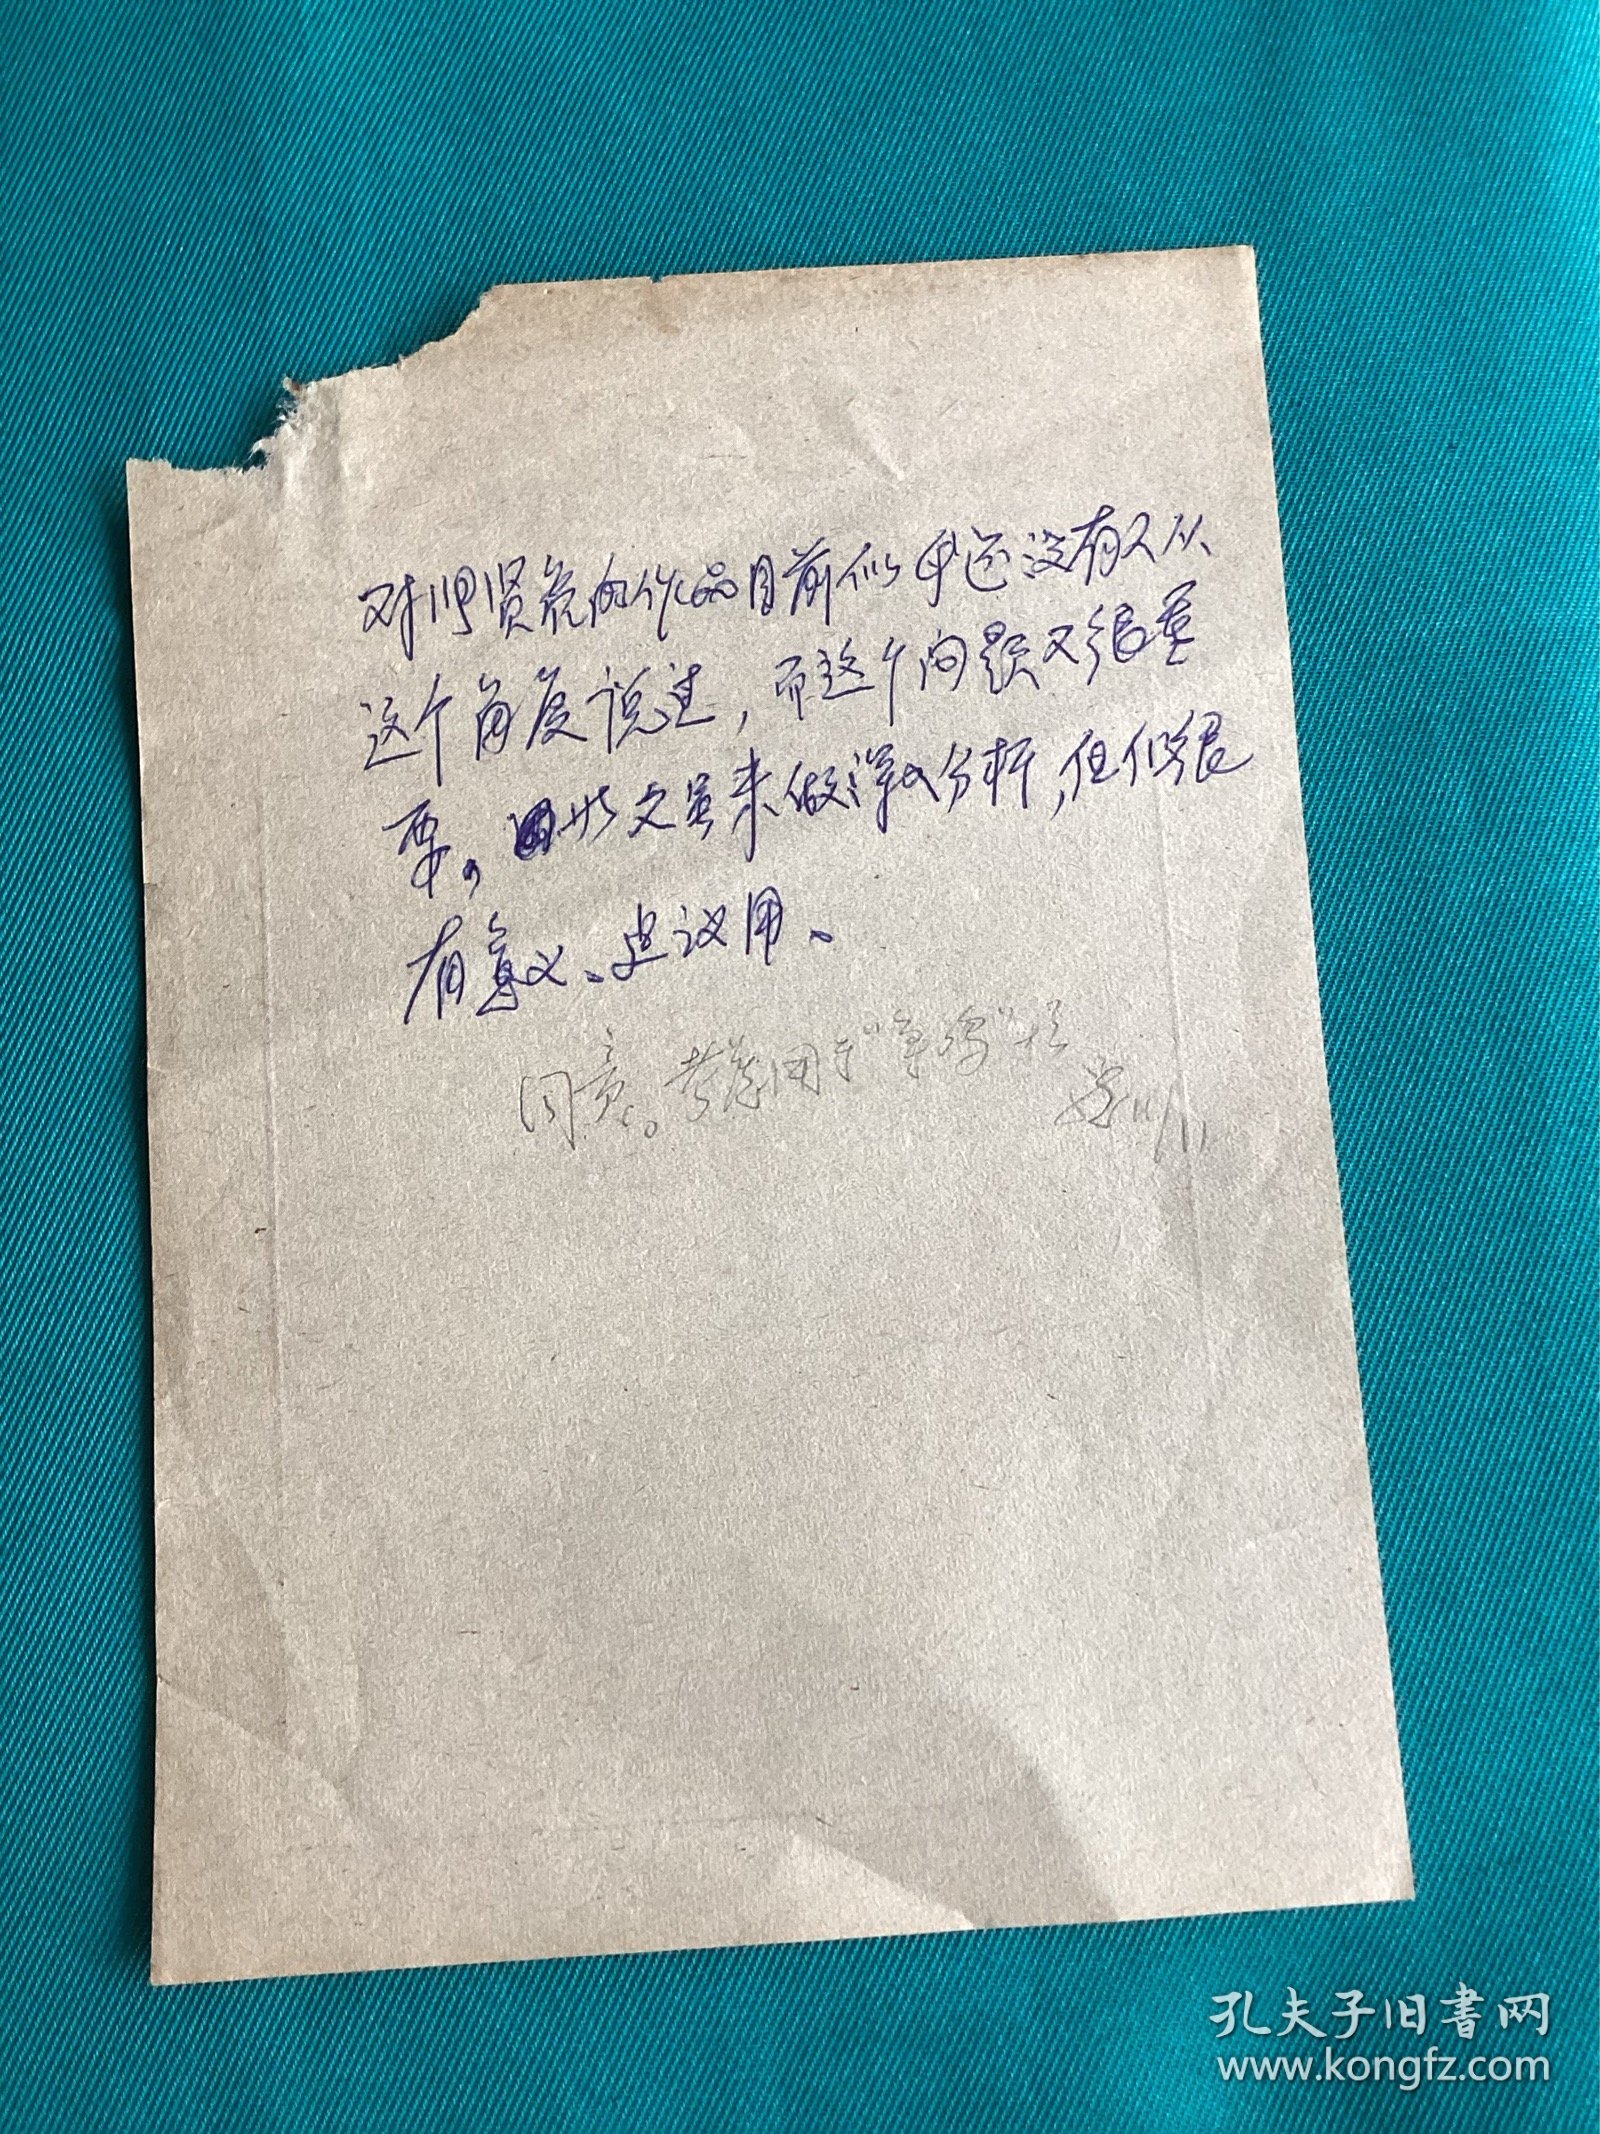 对的作品目前似乎还没有人从
这个角度说过，而这个问题又很重
要，此文虽未做深入分析，但仍很
有意义、建议用。
同意。考虑用于“争鸣”栏
孔夫子旧书网
www.kongfz.com